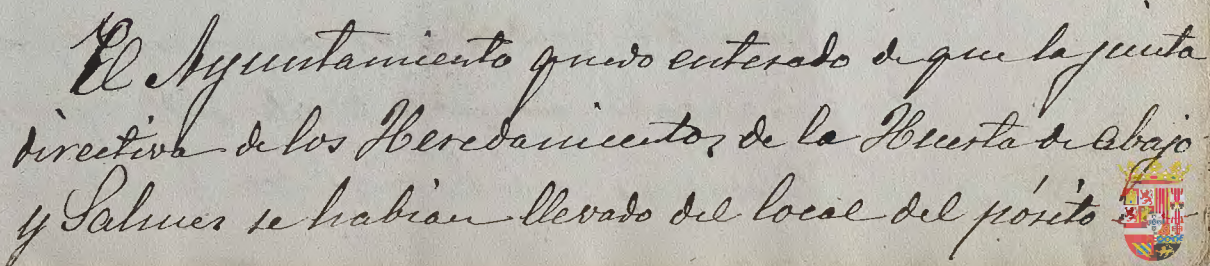 El Ayuntamiento quedo enterado de que la junta
directiva de los Heredamientos de la Huerta de abajo
y Salmer se habian llevado del local del pósito